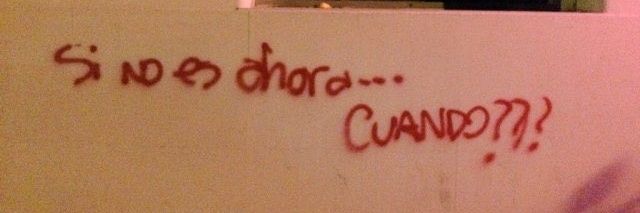 Si NO es ahora...
CUANDO???